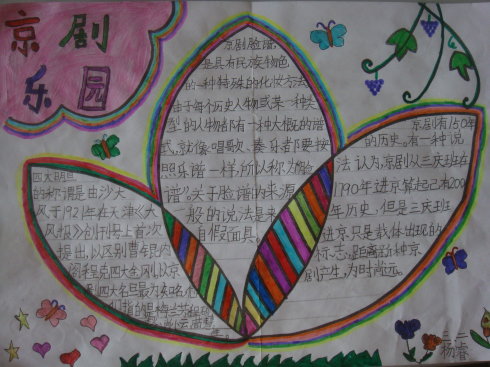 京剧
乐园
京剧脸谱,
是具有民族特色
的一种特殊的化妆方法
由于每个历史人物或某一种类
型的人物都有一种大概的谱
式,就像唱歌、奏乐者都要按
照乐谱一样,所以称为"脸
谱"。关于脸谱的来源
一般的说法是来
自假面具。
四大名旦
的称谓是由沙大
风于1921年在天津《大
风报》创刊号上首次
提出,以区别曹锟内
阁程克四大金刚,以京
剧四大名旦最为知名,他
们指的是:梅兰芳、程砚
秋、
京剧有150年
的历史。有一种说
法认为京剧从三庆班在
1190年进京算起已有200
年历史,但是三庆班
进京,只是我体出现的
标志,距离
剧产生,为时尚远。
二、二
杨春